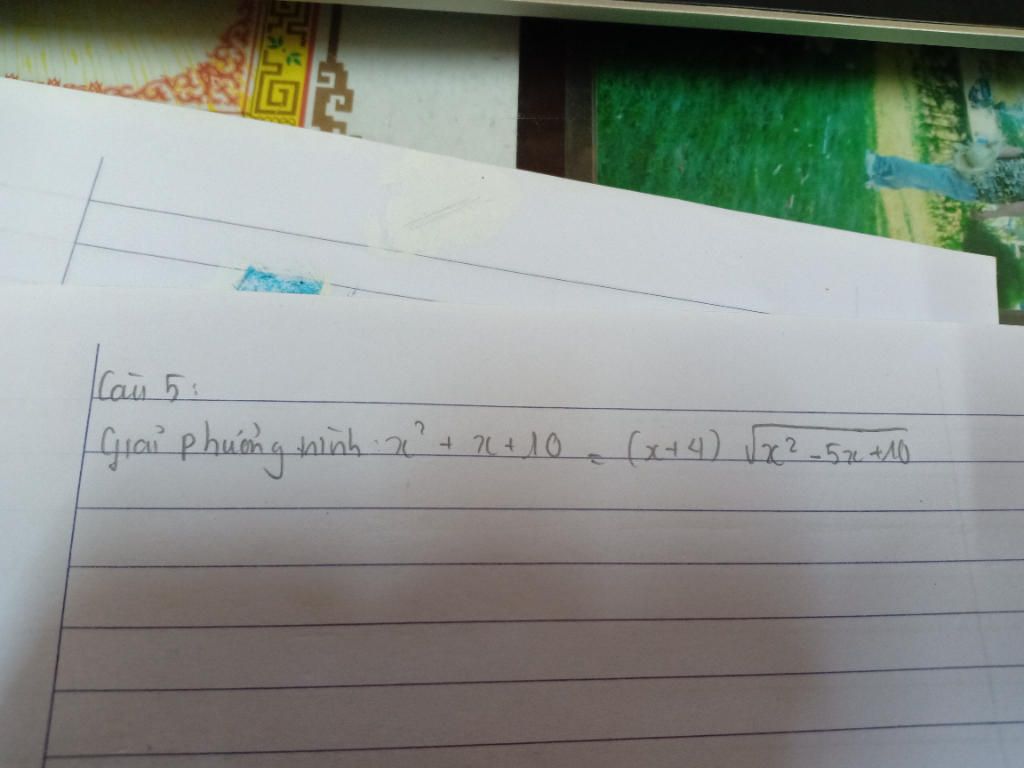 Câu 5:
Giải phương trình: x² + x + 10 = (x+4) √(x² - 5x + 10)